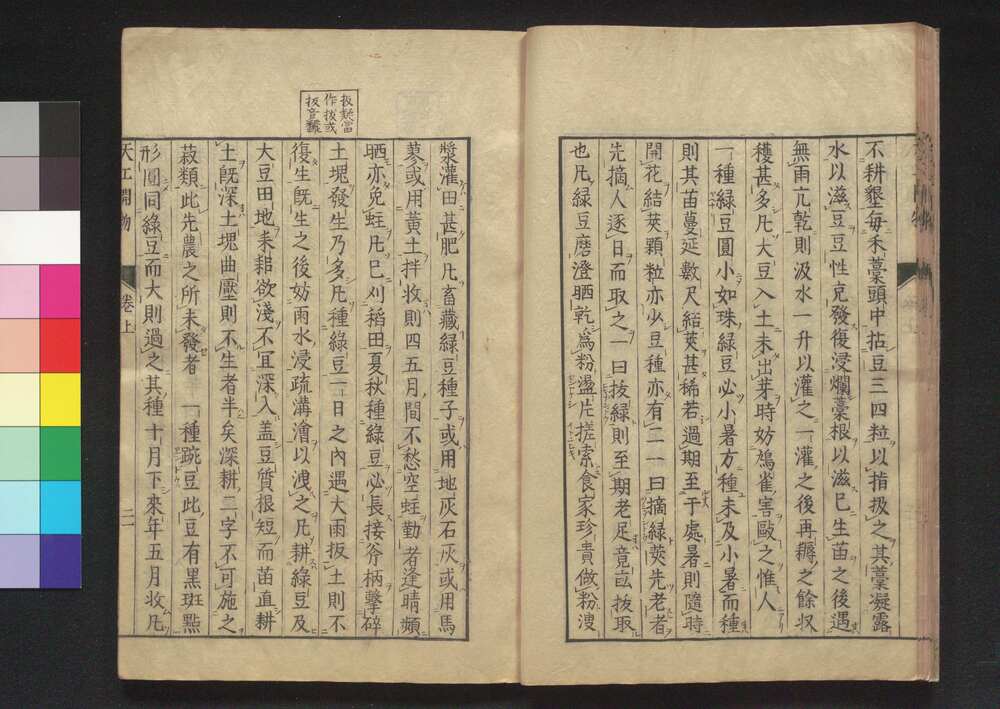 不耕墾每禾藁頭中拈豆三四粒以指扱之其藁凝露
水以滋豆豆性充發復浸爛藁根以滋已生苗之後遇
無雨亢乾則汲水一升以灌之一灌之後再耨之餘収
穫甚多凡大豆入土未出芽時妨鳩雀害敺之惟人
一種綠豆圓小如珠綠豆必小暑方種未及小暑而種
則其苗蔓延數尺結莢甚稀若過期至于處暑則隨時
開花結莢顆粒亦少豆種亦有二一曰摘綠莢先老者
先摘人逐日而取之一曰拔綠則至期老足竟畝拔取
也凡綠豆磨澄晒乾爲粉盪片搓索食家珍貴做粉溲
漿灌田甚肥凡畜藏綠豆種子或用地灰石灰或用馬
蓼或用黃土拌收則四五月間不愁空蛀勤者逢晴頻
晒亦免蛀凡已刈稻田夏秋種綠豆必長接斧柄擊碎
土塊發生乃多凡種綠豆一日之內遇大雨扳土則不
復生既生之後妨雨水浸疏溝澮以洩之凡耕綠豆及
大豆田地耒耜欲淺不宜深入盖豆質根短而苗直耕
土既深土塊曲壓則不生者半矣深耕二字不可施之
菽類此先農之所未發者　一種豌豆此豆有黑斑點
形圓同綠豆而大則過之其種十月下來年五月收凡
扳疑當
作拔或
扳音攀
天工開物
卷上
二